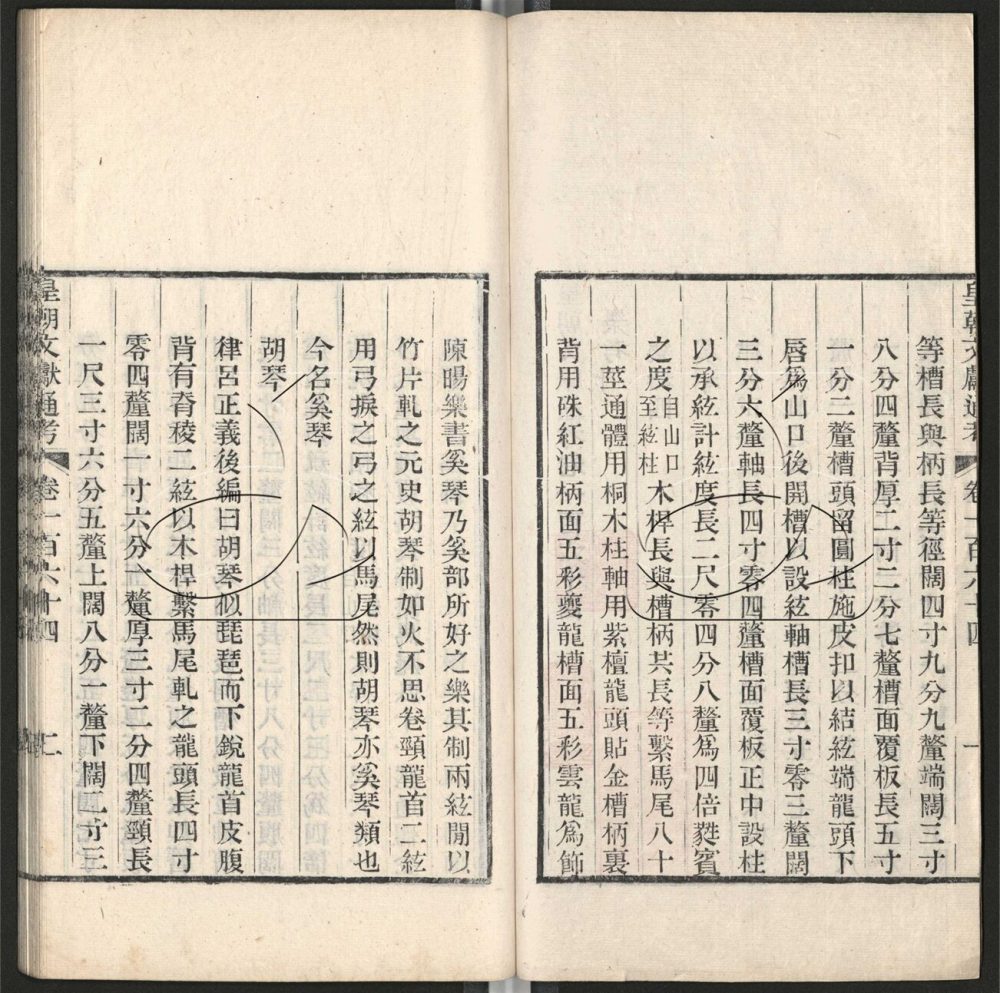 皇朝文獻通考 卷一百六十四 一
等槽長與柄長等徑闊四寸九分九釐端闊三寸
八分四釐背厚二寸二分七釐槽面覆板長五寸
一分二釐槽頭留圓柱施皮扣以結絃端龍頭下
脣為山口後開槽以設絃軸槽長三寸零三釐闊
三分六釐軸長四寸零四釐槽面覆板正中設柱
以承絃計絃度長二尺零四分八釐為四倍蕤賓
之度自山口至絃柱木桿長與槽柄共長等繫馬尾八十
一莖通體用桐木柱軸用紫檀龍頭貼金槽柄裏
背用硃紅油柄面五彩夔龍槽面五彩雲龍為節
陳暘樂書奚琴乃奚部所好之樂其制兩絃閒以
竹片軋之元史胡琴制如火不思卷頸龍首二絃
用弓捩之弓之絃以馬尾然則胡琴亦奚琴類也
今名奚琴
胡琴
律呂正義後編曰胡琴似琵琶而下銳龍首皮腹
背有脊稜二絃以木桿繫馬尾軋之龍頭長四寸
零四釐闊一寸六分六釐厚三寸二分四釐頸長
一尺三寸六分五釐上闊八分一釐下闊二寸三
皇朝文獻通考 卷一百六十四